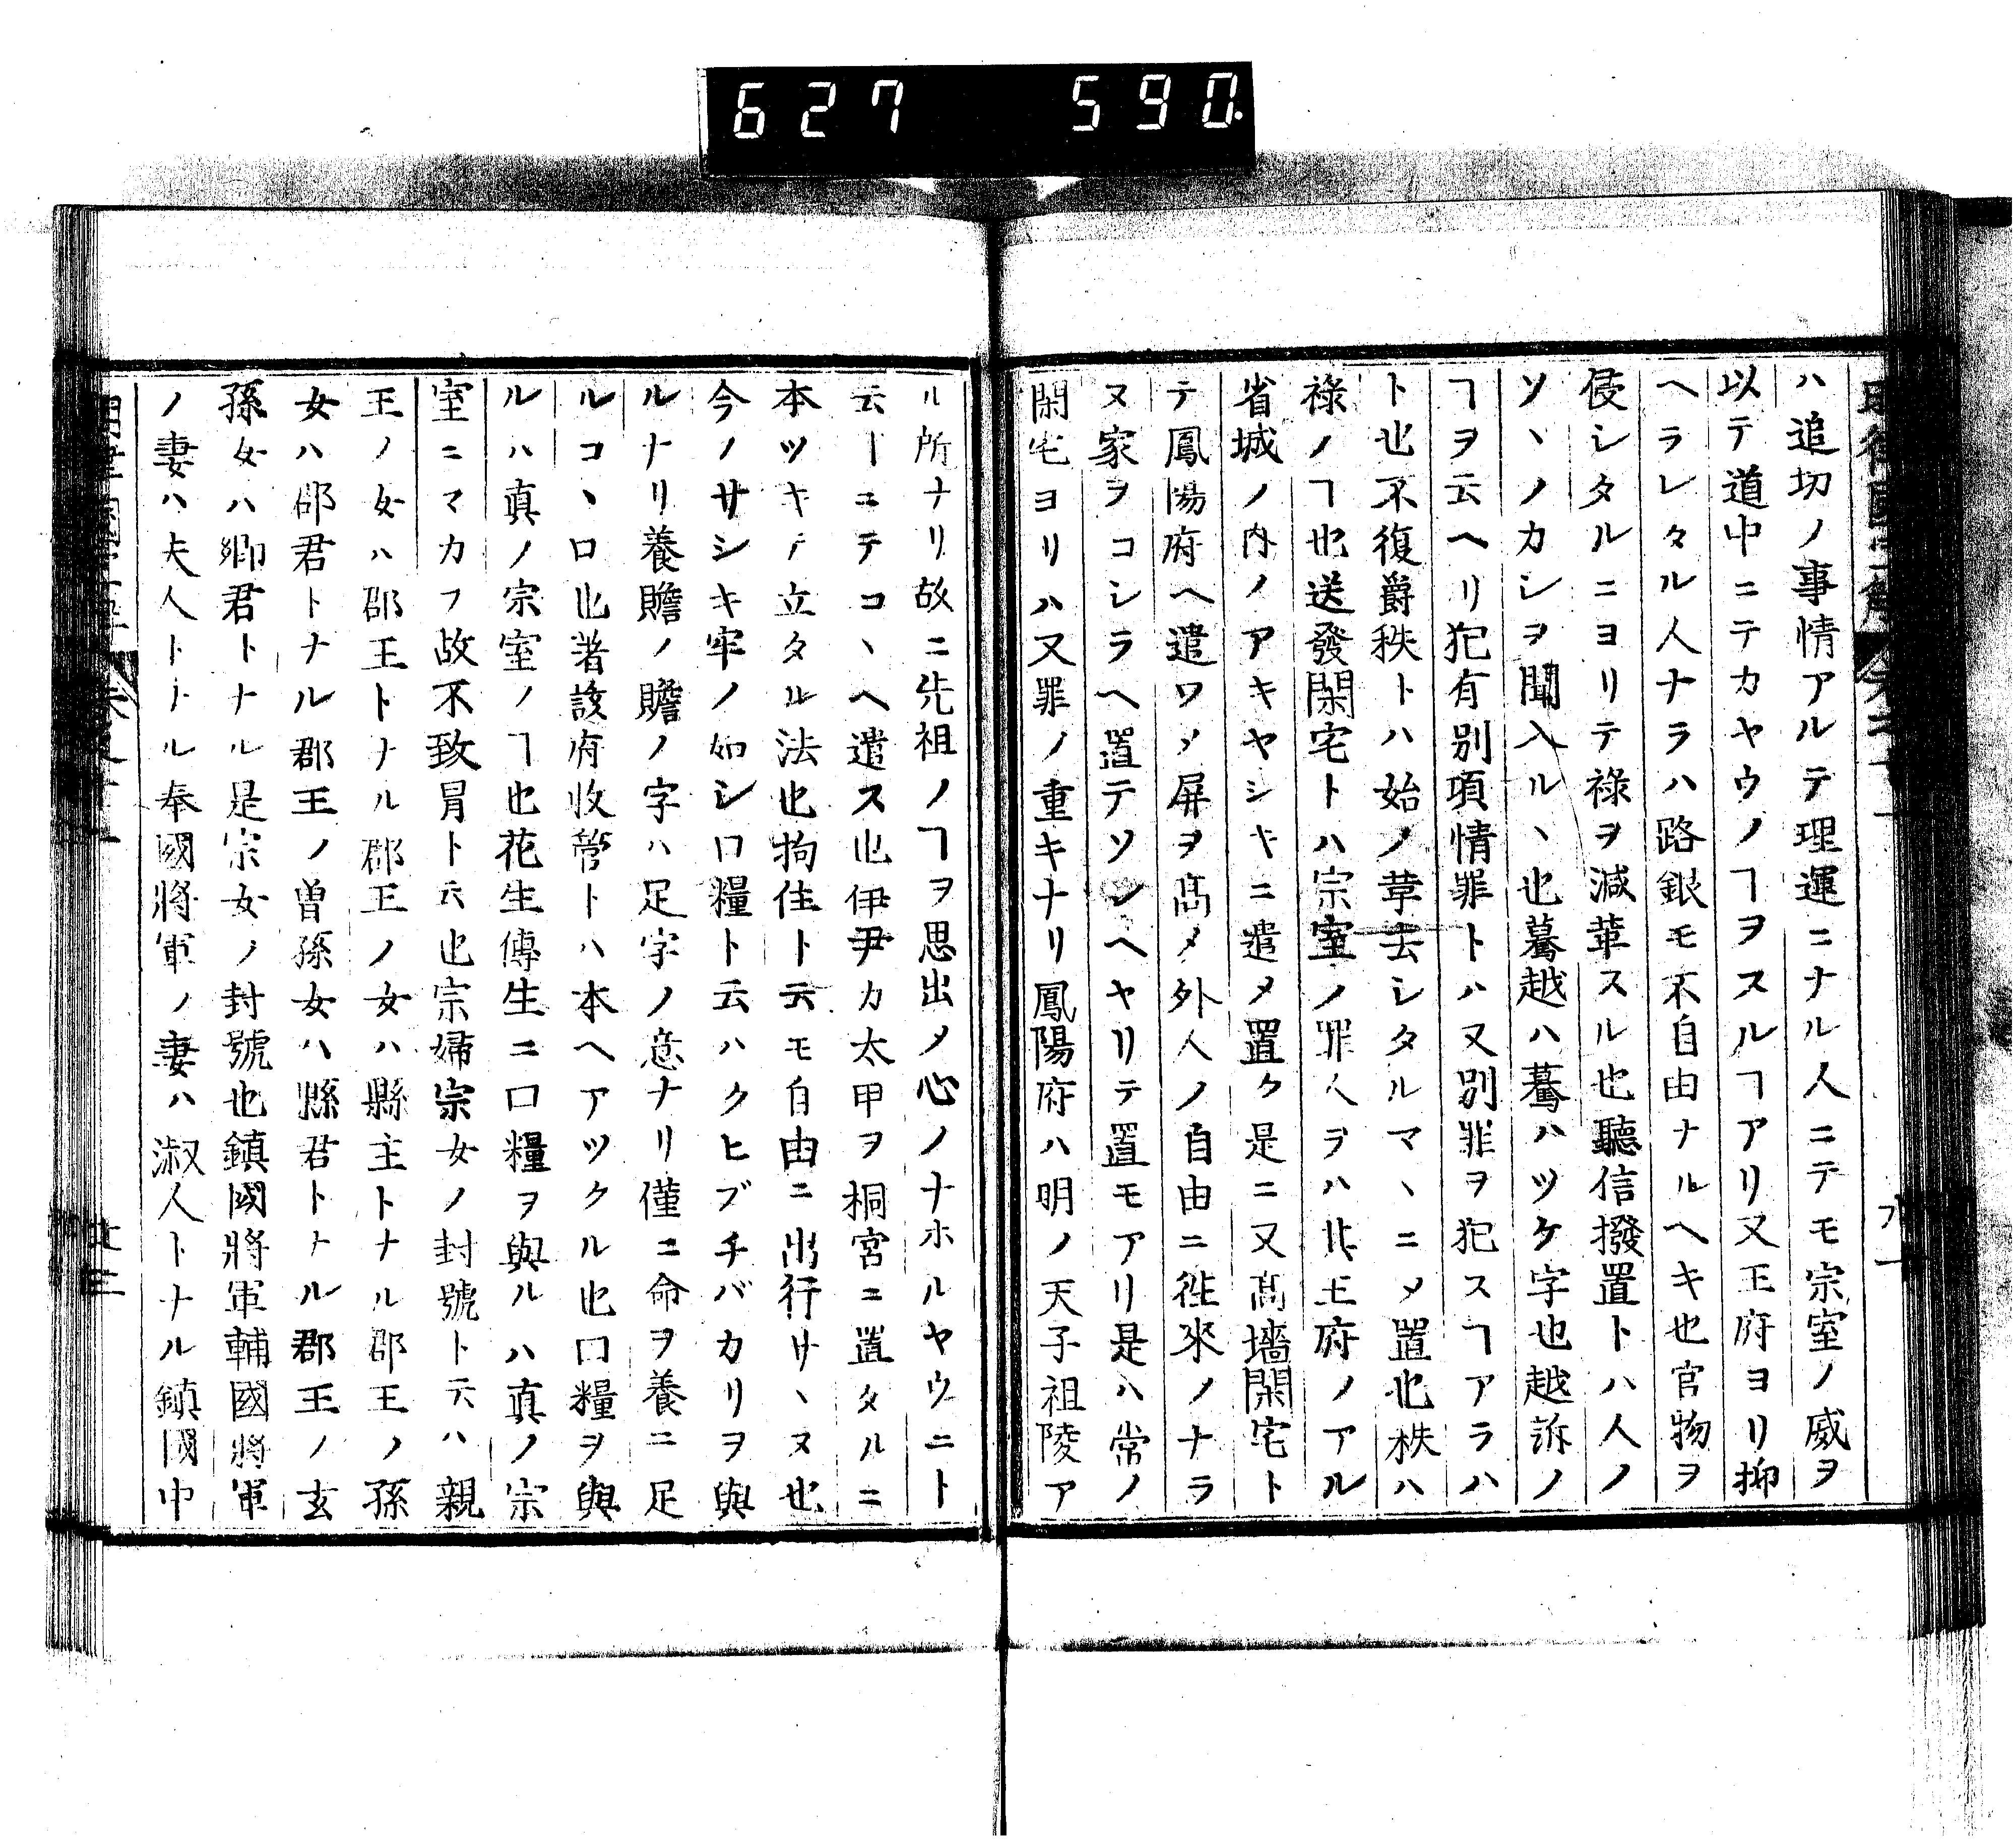 627 590
ハ追切ノ事情アルテ理運ニナル人ニテモ宗室ノ威ヲ
以テ道中ニテカヤウノヿヲスルヿアリ又王府ヨリ抑
ヘラレタル人ナラハ路銀モ不自由ナルヘキ也官物ヲ
侵シタルニヨリテ祿ヲ減革スル也聽信撥置トハ人ノ
ソヽノカシヲ聞入ルヽ也驀越ハ驀ハツケ字也越訴ノ
ヿヲ云ヘリ犯有別項情罪トハ又別罪ヲ犯スヿアラハ
ト也不復爵秩トハ始ノ革去シタルマヽニメ置也秩ハ
祿ノヿ也送發閑宅トハ宗室ノ罪人ヲハ其王府ノアル
省城ノ内ノアキヤシキニ遣メ置ク是ニ又髙墻閑宅ト
テ鳳陽府ヘ遣ワメ屏ヲ髙メ外人ノ自由ニ徃來ノナラ
ヌ家ヲコシラヘ置テソレヘヤリテ置モアリ是ハ常ノ
閑宅ヨリハ又罪ノ重キナリ鳳陽府ハ明ノ天子祖陵ア
ル所ナリ故ニ先祖ノヿヲ思出ノ心ノナホルヤウニト
云ーニテコヽヘ遣ス也伊尹カ太甲ヲ桐宮ニ置タルニ
本ツキテ立タル法也拘住ト云モ自由ニ出行サヽヌ也
今ノサシキ牢ノ如シ口糧ト云ハクヒブチバカリヲ與
ルナリ養贍ノ贍ノ字ハ足字ノ意ナリ僅ニ命ヲ養ニ足
ルコヽロ也著該府收管トハ本ヘアツクル也口糧ヲ與
ルハ真ノ宗室ノヿ也花生傳生ニ口糧ヲ與ルハ真ノ宗
室ニマカフ故不致冐ト云也宗婦宗女ノ封號ト云ハ親
王ノ女ハ郡王トナル郡王ノ女ハ縣主トナル郡王ノ孫
女ハ郡君トナル郡王ノ曽孫女ハ縣君トナル郡王ノ玄
孫女ハ鄉君トナル是宗女ノ封號也鎮國將軍輔國將軍
ノ妻ハ夫人トナル奉國將軍ノ妻ハ淑人トナル鎮國中